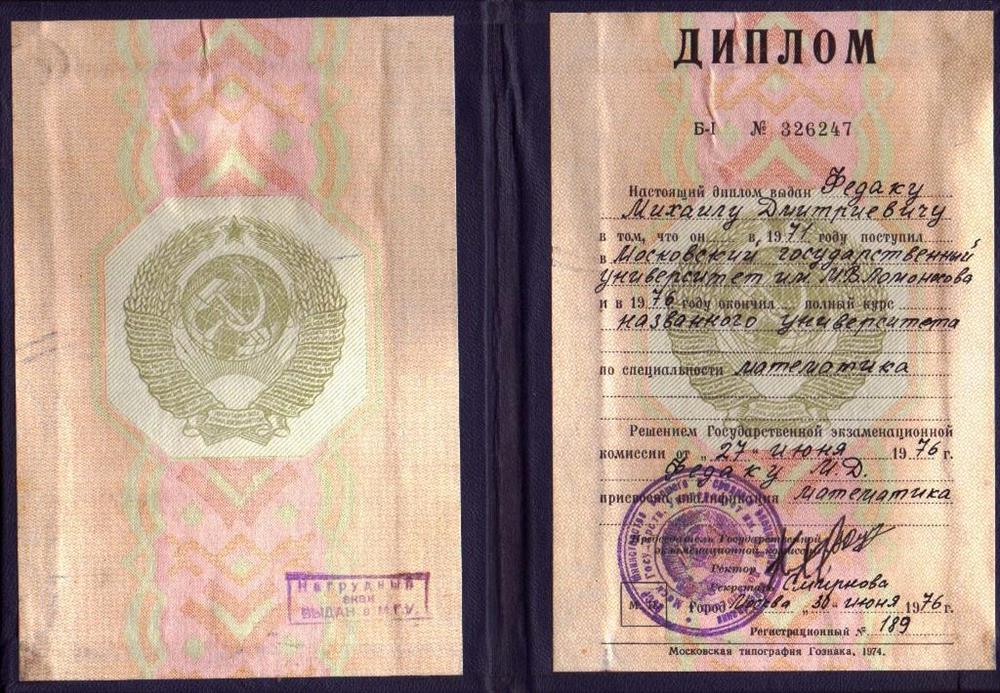 Нагрудный
знак
ВЫДАН в М.Г.У.
ДИПЛОМ
Б-I № 326247
Настоящий диплом выдан Федаку
Михаилу Дмитриевичу
в том, что он в 1971 году поступил
в Московский государственный
университет им. М.В.Ломоносова
и в 1976 году окончил полный курс
названного университета
по специальности математика
Решением Государственной экзаменационной
комиссии от „27" июня 1976 г.
Федаку М.Д.
присвоена квалификация математика
Председатель Государственной
экзаменационной комиссии
Ректор
Секретарь Смирнова
Город Москва „30" июня 1976 г.
Регистрационный № 189
Московская типография Гознака, 1974.